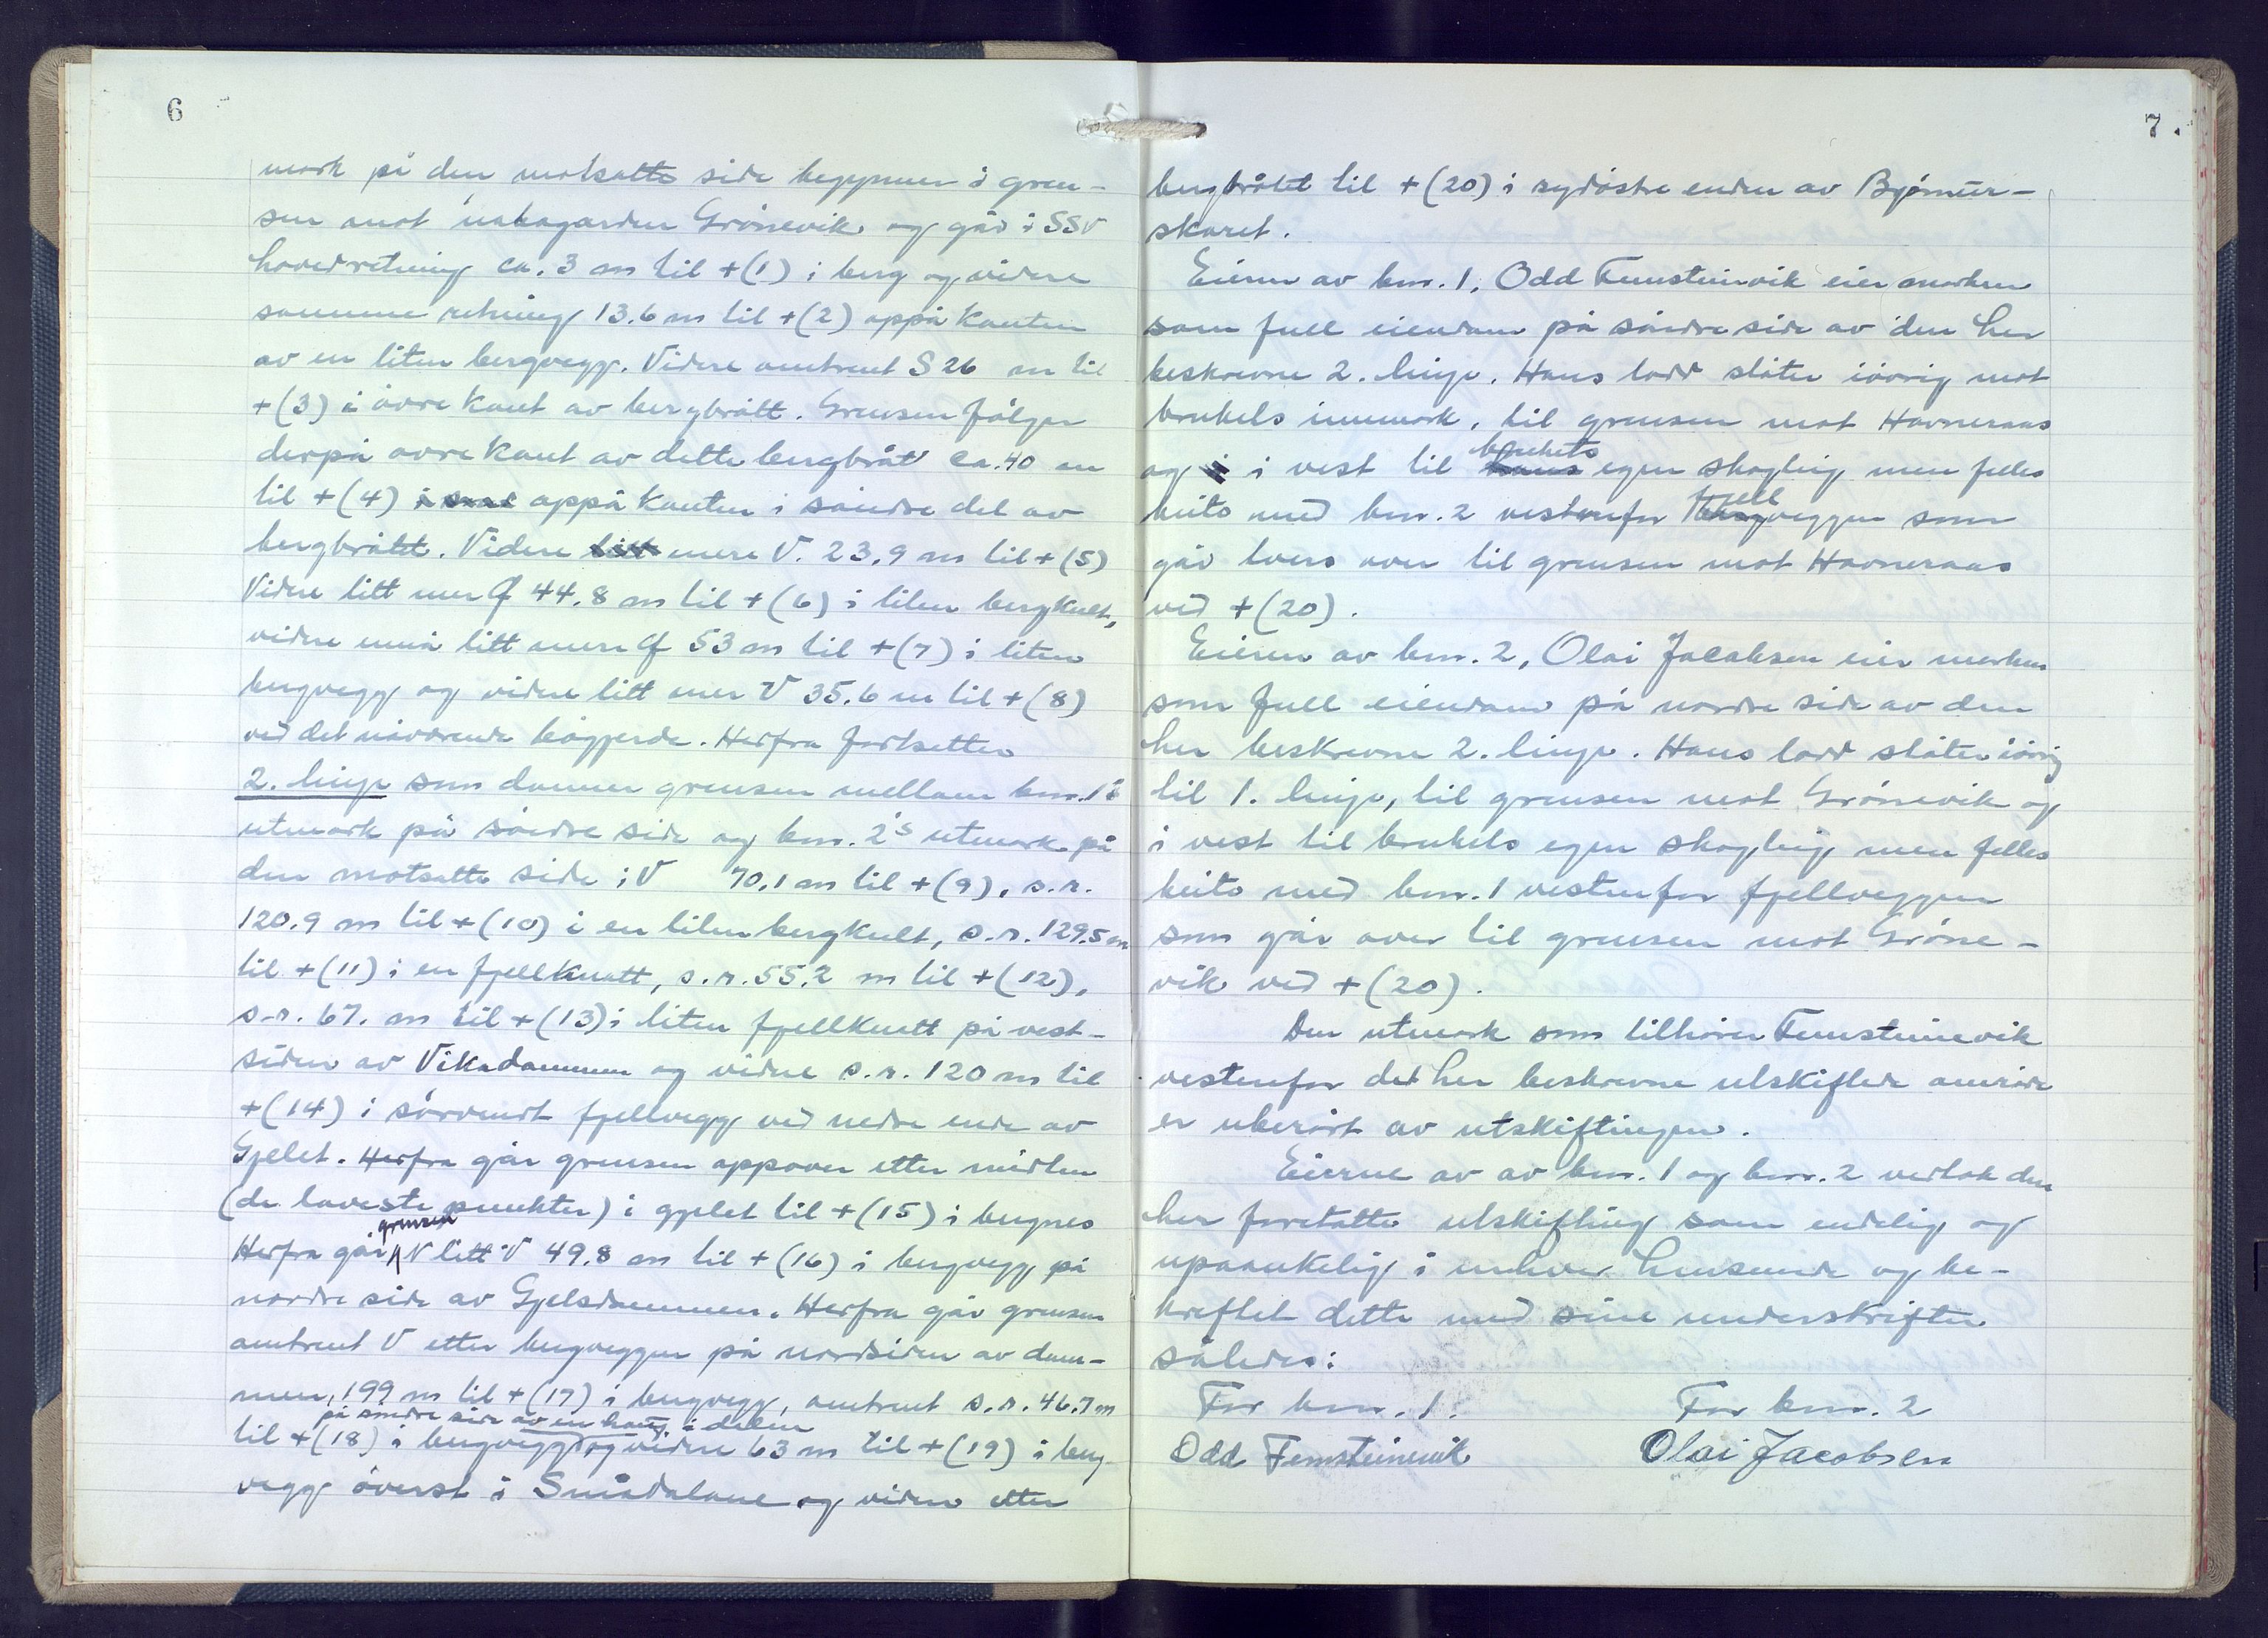 6
mark på den motsatte side begynner i gren-
sen mot nabogarden Grönevik og går i SSV
hovedretning ca. 3 m til +(1) i berg og videre
samme retning 13.6 m til +(2) oppå kanten
av en liten bergvegg. Videre omtrent S 26 m til
+(3) i övre kant av bergbrått. Grensen fölger
derpå övre kant av dette bergbråt ca. 40 m
til +(4) oppå kanten i söndre del av
bergbråtet. Videre litt mere V. 23.9 m til +(5)
Videre litt mer 44.8 m til +(6) i liten bergkult,
videre ennå litt mere 53 m til +(7) i liten
bergvegg og videre litt mer V 35.6 m til +(8)
ved det nåværende bögjerde. Herfra fortsetter
2. linje som danner grensen mellem bnr. 1's
utmark på söndre side og bnr. 2's utmark på
den motsatte side i V 70.1 m til +(9), s.r.
120.9 m til +(10) i en liten bergkult, s.r. 129.5 m
til +(11) i en fjellknatt, s.r. 55.2 m til +(12),
s.r. 67. m til +(13) i liten fjellknatt på vest-
siden av Vikadammen og videre s.r. 120 m til
+(14) i sörvendt fjellvegg ved nedre ende av
Gjelet. Herfra går grensen oppover etter midten
(de laveste punkter) i gjelet til +(15) i bergnes
Herfra går grensen N litt V 49.8 m til +(16) i bergvegg på
nordre side av Gjelsdammen. Herfra går grensen
omtrent V etter bergveggen på nordsiden av dam-
men, 199 m til +(17) i bergvegg, omtrent s.r. 46.7 m
på söndre side av en haug i dalen
til +(18) i bergvegg og videre 63 m til +(19) i berg-
vegg överst i Smådalane og videre etter
7.
bergbråtet til +(20) i sydöstre enden av Björnur-
skaret.
Eieren av bnr. 1, Odd Femsteinevik eier marken
som full eiendom på söndre side av den her
beskrevne 2. linje. Hans lodd stöter iövrig mot
brukets innmark, til grensen mot Havneraas
og i vest til brukets egen skogteig men felles
beite med bnr. 2 vestenfor fjellveggen som
går tvers over til grensen mot Havneraas
ved +(20).
Eieren av bnr. 2, Olai Jacobsen eier marken
som full eiendom på nordre side av den
her beskrevne 2. linje. Hans lodd stöter iövrig
til 1. linje, til grensen mot Grönevik og
i vest til brukets egen skogteig men felles
beite med bnr. 1 vestenfor fjellveggen
som går over til grensen mot Gröne-
vik ved +(20).
Den utmark som tilhörer Femsteinevik
vestenfor det her beskrevne utskiftede område
er uberört av utskiftingen.
Eierne av av bnr. 1 og bnr. 2 vedtok den
her foretatte utskifting som endelig og
upaankelig i enhver henseende og be-
kreftet dette med sine underskrifter
således:
For bnr. 1. For bnr. 2
Odd Femsteinevik Olai Jacobsen